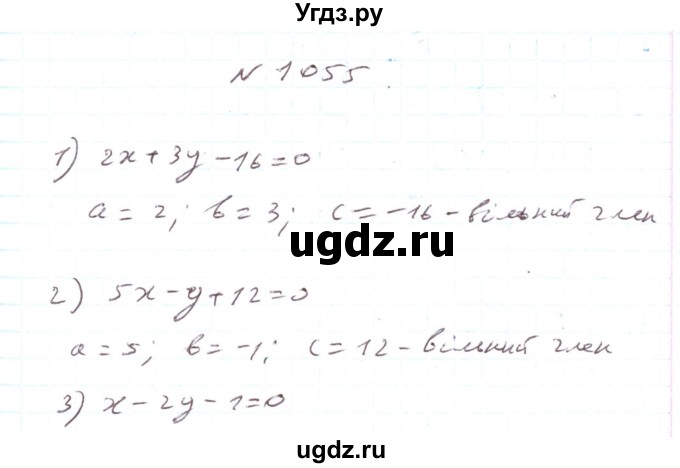 Угдз.ру
№ 1055
1) 2x+3y-16=0
a=2; b=3; c=-16 - вільний член
ugdz.ru
2) 5x-y+12=0
a=5; b=-1; c=12 - вільний член
3) x-2y-1=0
ugdz.ru